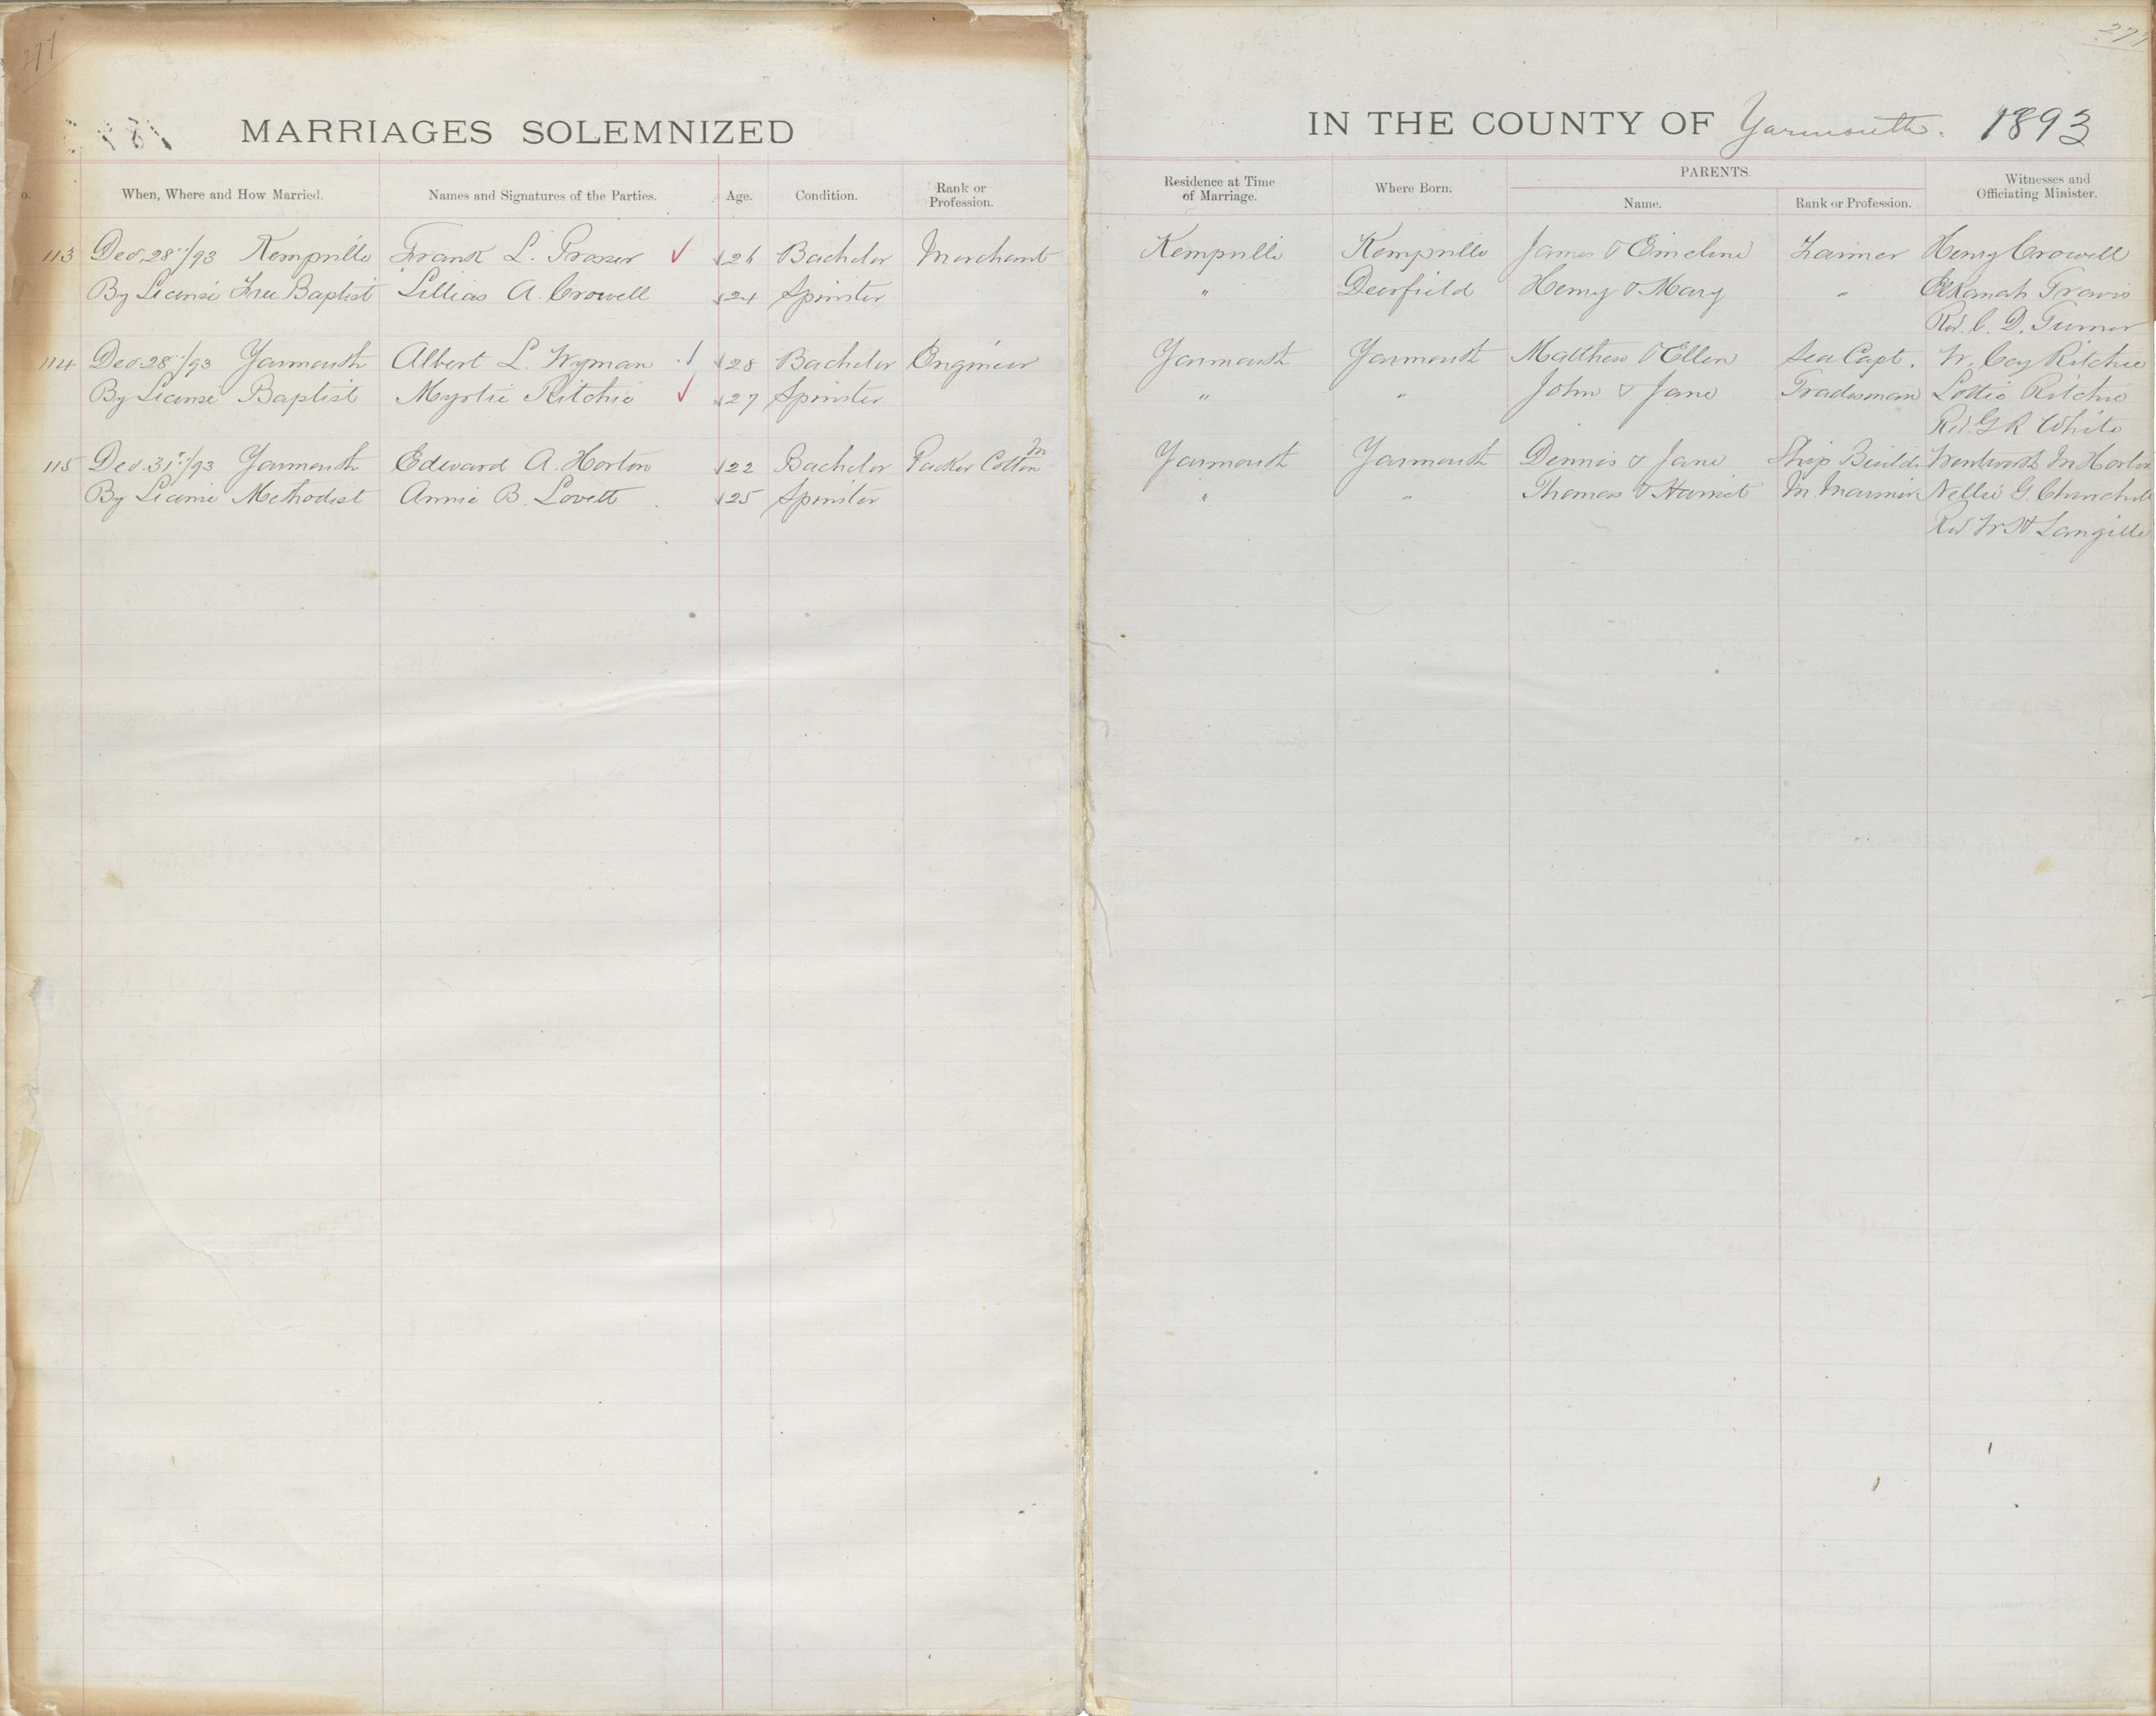 277
277
MARRIAGES SOLEMNIZED IN THE COUNTY OF Yarmouth. 1893
o. When, Where and How Married. Names and Signatures of the Parties. Age. Condition. Rank or Profession. Residence at Time of Marriage. Where Born. PARENTS. Name. Rank or Profession. Witnesses and Officiating Minister.
113 Dec. 28"/93 Kempville Frank L. Prosser 26 Bachelor Merchant Kempville Kempville James & Emeline Farmer Henry Crowell
By License Free Baptist Lillias A. Crowell 24 Spinster " Deerfield Henry & Mary " Elkanah Travis
Rev. C. D. Turner
114 Dec 28"/93 Yarmouth Albert L. Wyman 28 Bachelor Engineer Yarmouth Yarmouth Matthew & Ellen Sea Capt. W. Coy Ritchie
By License Baptist Myrtie Ritchie 27 Spinster " " John & Jane Tradesman Lottie Ritchie
Rev. G R White
115 Dec. 31st/93 Yarmouth Edward A. Horton 22 Bachelor Packer Cotton M Yarmouth Yarmouth Dennis & Jane Ship Build. Wentworth M Horton
By License Methodist Annie B. Lovett 25 Spinster " " Thomas & Harriet M. Mariner Nellie G. Churchill
Rev W H Langille